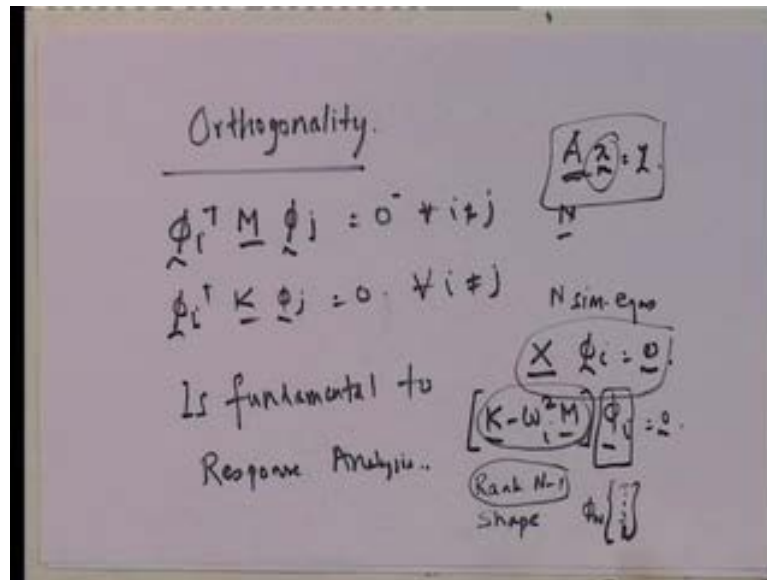 Orthogonality.
ϕᵢᵀ M ϕⱼ = 0 ∀ i ≠ j
ϕᵢᵀ K ϕⱼ = 0. ∀ i ≠ j
Is fundamental to
Response Analysis..
A x = y.
N
N sim. eqns
X ϕᵢ = 0
[K - ωᵢ² M] ϕᵢ = 0.
Rank N-1
Shape